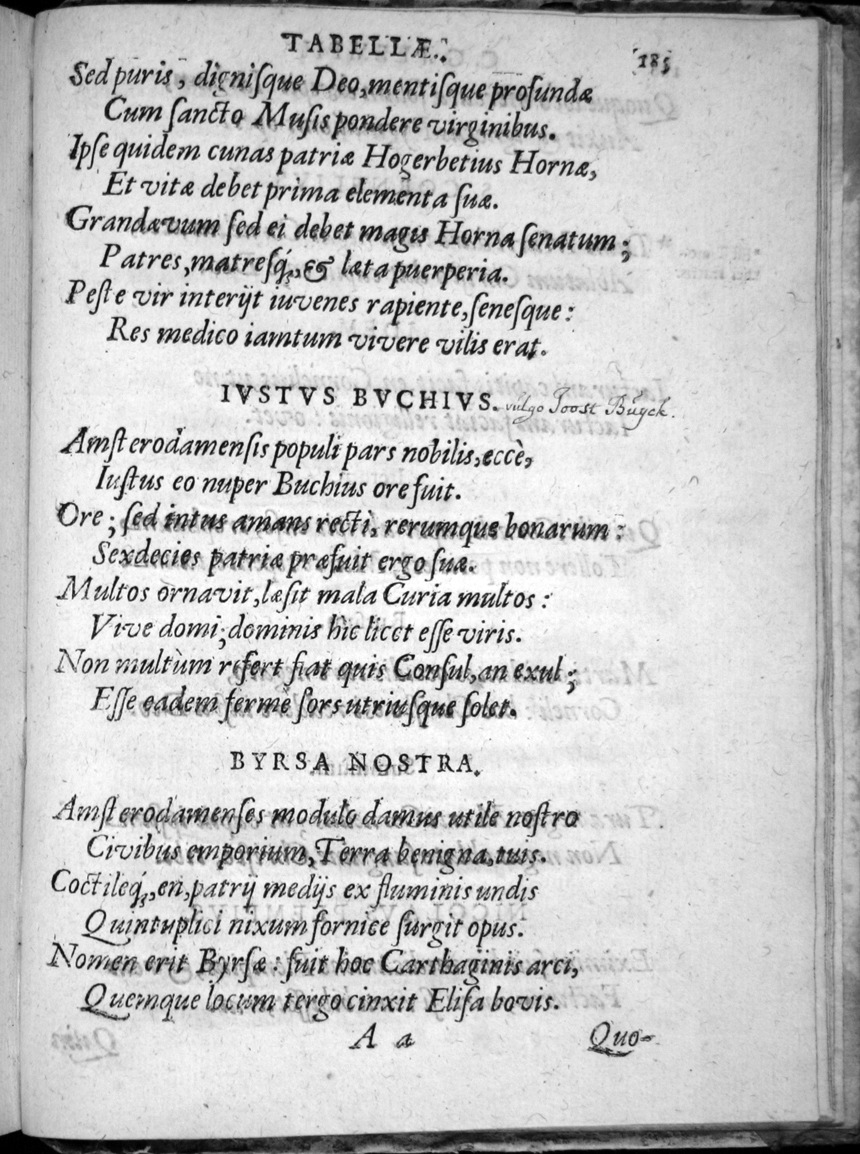 TABELLÆ. 185
Sed puris, dignisque Deo, mentisque profundæ
Cum sancto Musis pondere virginibus.
Ipse quidem cunas patriæ Hogerbetius Hornæ,
Et vitæ debet prima elementa suæ.
Grandævum sed ei debet magis Horna senatum;
Patres, matresq́;, & læta puerperia.
Peste vir interijt iuvenes rapiente, senesque:
Res medico iamtum vivere vilis erat.
IVSTVS BVCHIVS. vulgo Joost Buyck.
Amsterodamensis populi pars nobilis, eccè,
Iustus eo nuper Buchius ore fuit.
Ore; sed intus amans recti, rerumque bonarum:
Sexdecies patriæ præfuit ergo suæ.
Multos ornavit, læsit mala Curia multos:
Vive domi; dominis hic licet esse viris.
Non multùm refert fiat quis Consul, an exul;
Esse eadem fermè sors utriusque solet.
BYRSA NOSTRA.
Amsterodamenses modulo damus utile nostro
Civibus emporium, Terra benigna, tuis.
Coctileq́;, en, patrij medijs ex fluminis undis
Quintuplici nixum fornice surgit opus.
Nomen erit Byrsæ: fuit hoc Carthaginis arci,
Quemque locum tergo cinxit Elisa bovis.
A a Quo-